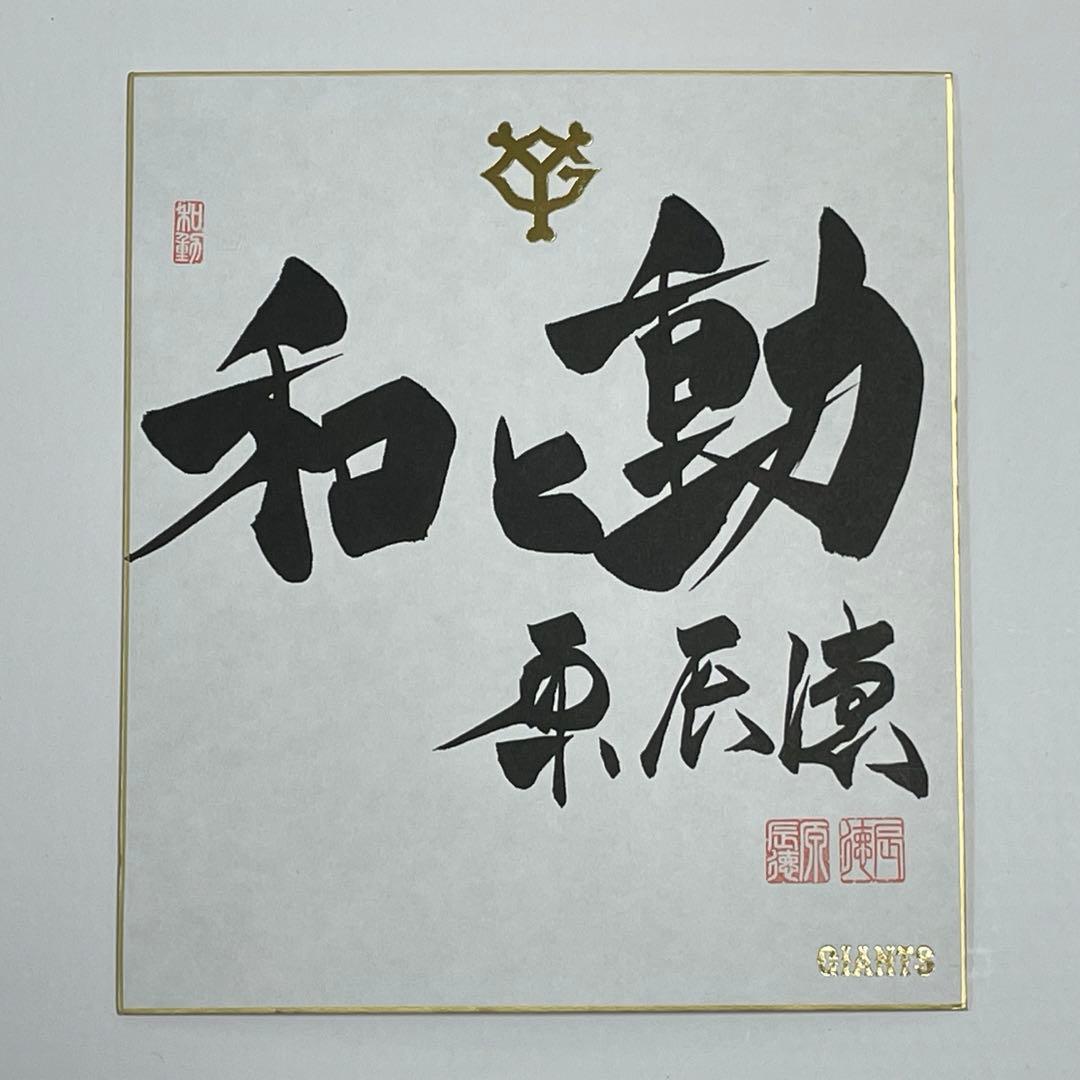 YG
和動
和と動
原辰徳
原辰徳
辰徳
GIANTS